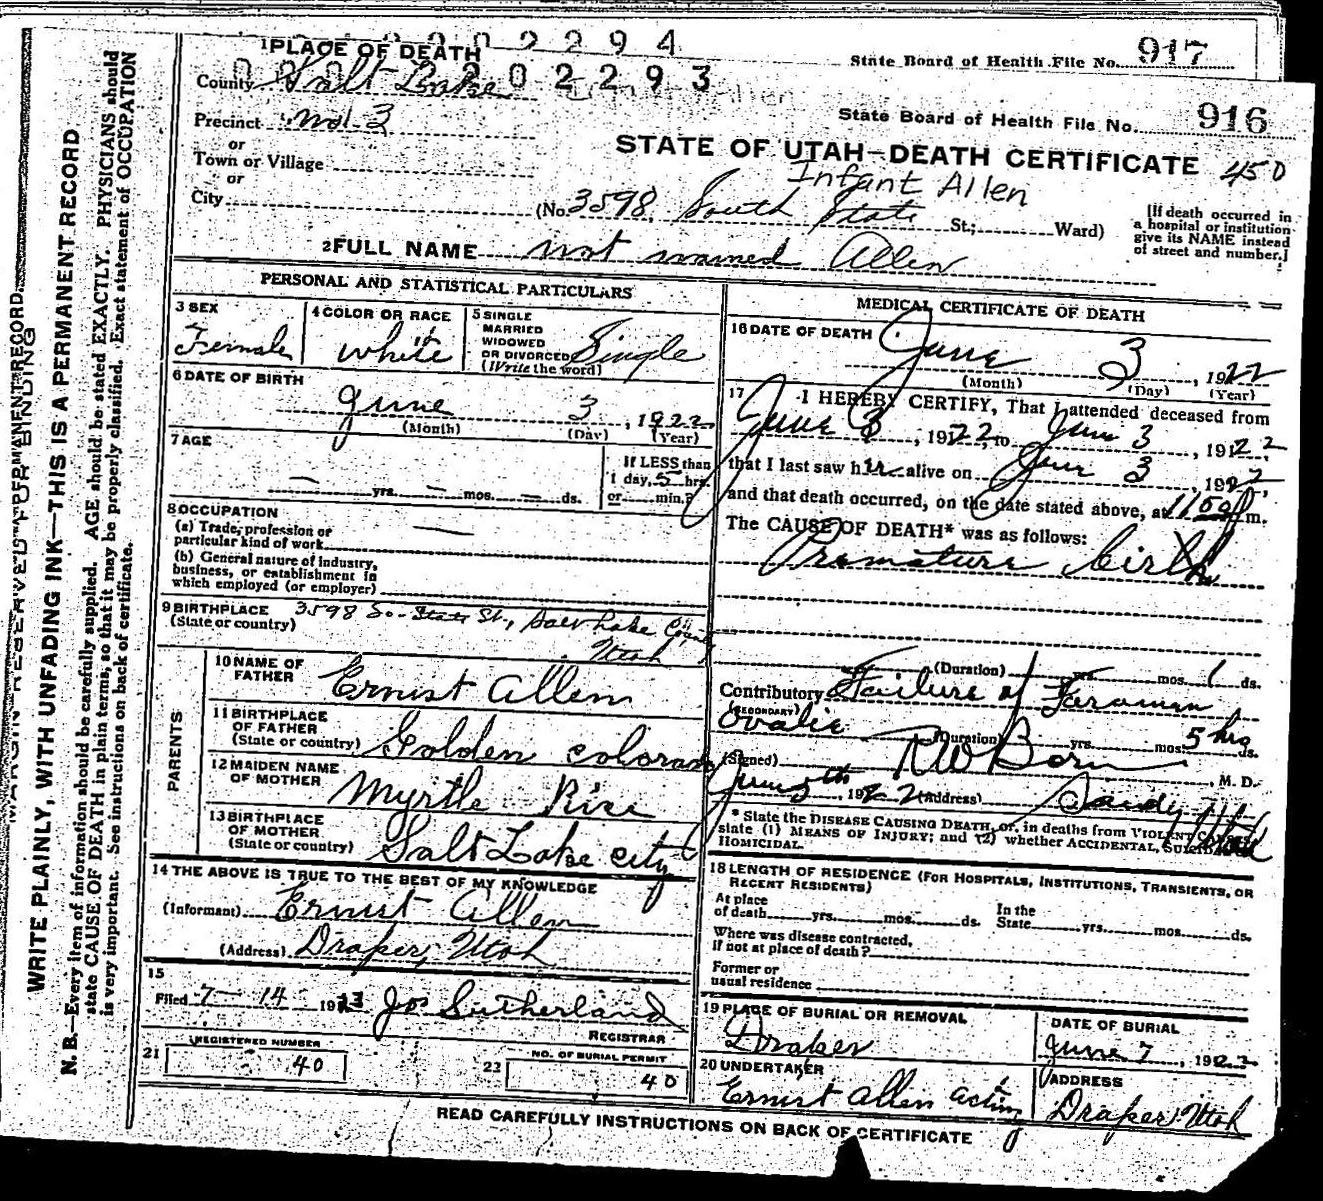 0 2 2 9 4
1 PLACE OF DEATH
State Board of Health File No. 917
2 0 2 2 9 3
County Salt Lake
State Board of Health File No. 916
Precinct No. 3
or
STATE OF UTAH—DEATH CERTIFICATE 450
Town or Village
or
Infant Allen
City
(No. 3598 South State St.; Ward)
[If death occurred in
a hospital or institution
give its NAME instead
of street and number.]
2 FULL NAME not named Allen
WRITE PLAINLY, WITH UNFADING INK—THIS IS A PERMANENT RECORD
N. B.—Every item of information should be carefully supplied. AGE should be stated EXACTLY. PHYSICIANS should
state CAUSE OF DEATH in plain terms, so that it may be properly classified. Exact statement of OCCUPATION
is very important. See instructions on back of certificate.
PERSONAL AND STATISTICAL PARTICULARS
3 SEX
Female
4 COLOR OR RACE
white
5 SINGLE
MARRIED
WIDOWED
OR DIVORCED
(Write the word)
Single
6 DATE OF BIRTH
June 3, 1922
(Month) (Day) (Year)
7 AGE
— yrs. — mos. — ds.
If LESS than
1 day, 5 hrs.
or min.?
8 OCCUPATION
(a) Trade, profession or
particular kind of work
—
(b) General nature of industry,
business, or establishment in
which employed (or employer)
9 BIRTHPLACE
(State or country)
3598 So. State St., Salt Lake County
Utah
PARENTS
10 NAME OF
FATHER
Ernist Allen
11 BIRTHPLACE
OF FATHER
(State or country)
Golden Colorado
12 MAIDEN NAME
OF MOTHER
Myrtle Rise
13 BIRTHPLACE
OF MOTHER
(State or country)
Salt Lake City
14 THE ABOVE IS TRUE TO THE BEST OF MY KNOWLEDGE
(Informant) Ernist Allen
(Address) Draper, Utah
15
Filed 7-14 19 Jos Sutherland
REGISTRAR
21 REGISTERED NUMBER
40
22 NO. OF BURIAL PERMIT
40
MEDICAL CERTIFICATE OF DEATH
16 DATE OF DEATH June 3, 1922
(Month) (Day) (Year)
17 I HEREBY CERTIFY, That I attended deceased from
June 3, 1922, to June 3, 1922
that I last saw her alive on June 3, 1922,
and that death occurred, on the date stated above, at 1150 P m.
The CAUSE OF DEATH* was as follows:
Premature birth
(Duration) yrs. mos. 1 ds.
Contributory Failure of Foramen
(SECONDARY)
Ovalie (Duration) yrs. mos. 5 hrs ds.
(Signed) RW Born, M. D.
June 5th 1922 (Address) Sandy Utah
* State the DISEASE CAUSING DEATH, or, in deaths from VIOLENT CAUSES,
state (1) MEANS OF INJURY; and (2) whether ACCIDENTAL, SUICIDAL, or
HOMICIDAL.
18 LENGTH OF RESIDENCE (FOR HOSPITALS, INSTITUTIONS, TRANSIENTS, OR
RECENT RESIDENTS)
At place
of death yrs. mos. ds.
In the
State yrs. mos. ds.
Where was disease contracted,
if not at place of death?
Former or
usual residence
19 PLACE OF BURIAL OR REMOVAL
Draper
DATE OF BURIAL
June 7, 1922
20 UNDERTAKER
Ernist Allen acting
ADDRESS
Draper Utah
READ CAREFULLY INSTRUCTIONS ON BACK OF CERTIFICATE